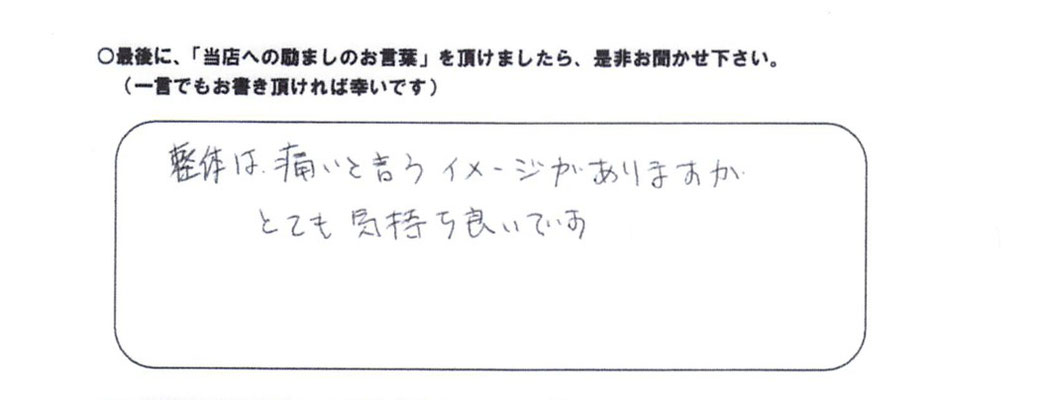 ○最後に、「当店への励ましのお言葉」を頂けましたら、是非お聞かせ下さい。
（一言でもお書き頂ければ幸いです）
整体は、痛いと言うイメージがありますが
とても気持ち良いです